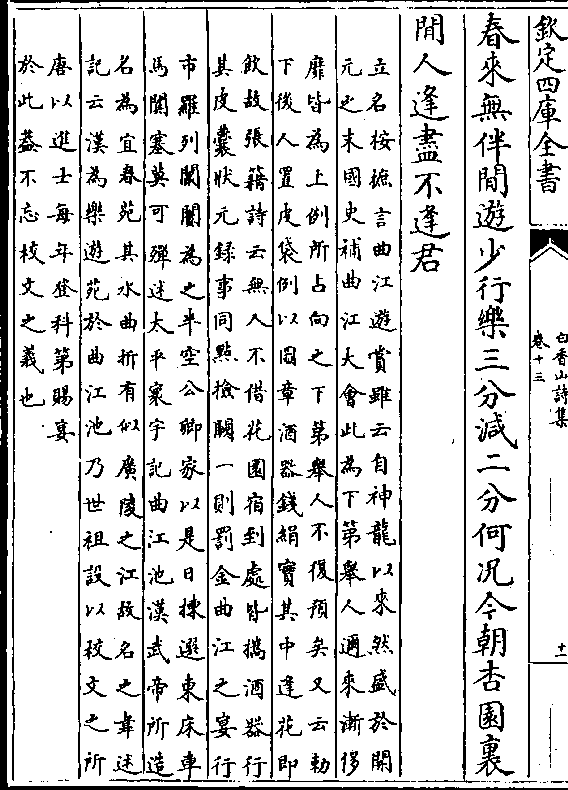 欽定四庫全書
白香山詩集
卷十三
十一
春來無伴閒遊少行樂三分減二分何況今朝杏園裏
閒人逢盡不逢君
立名按摭言曲江遊賞雖云自神龍以來然盛於開
元之末國史補曲江大會此為下第舉人邇來漸侈
靡皆為上例所占向之下第舉人不復預矣又云勅
下後人置皮袋例以圖章酒器錢絹實其中逢花即
飲故張籍詩云無人不借花園宿到處皆攜酒器行
其皮囊狀元録事同點撿闕一則罰金曲江之宴行
市羅列闤闠為之半空公卿家以是日揀選東床車
馬闐塞莫可殫述大平寰宇記曲江池漢武帝所造
名為宜春苑其水曲折有似廣陵之江故名之韋述
記云漢為樂遊苑於曲江池乃世祖設以校文之所
唐以進士每年登科第賜宴
於此葢不忘校文之義也